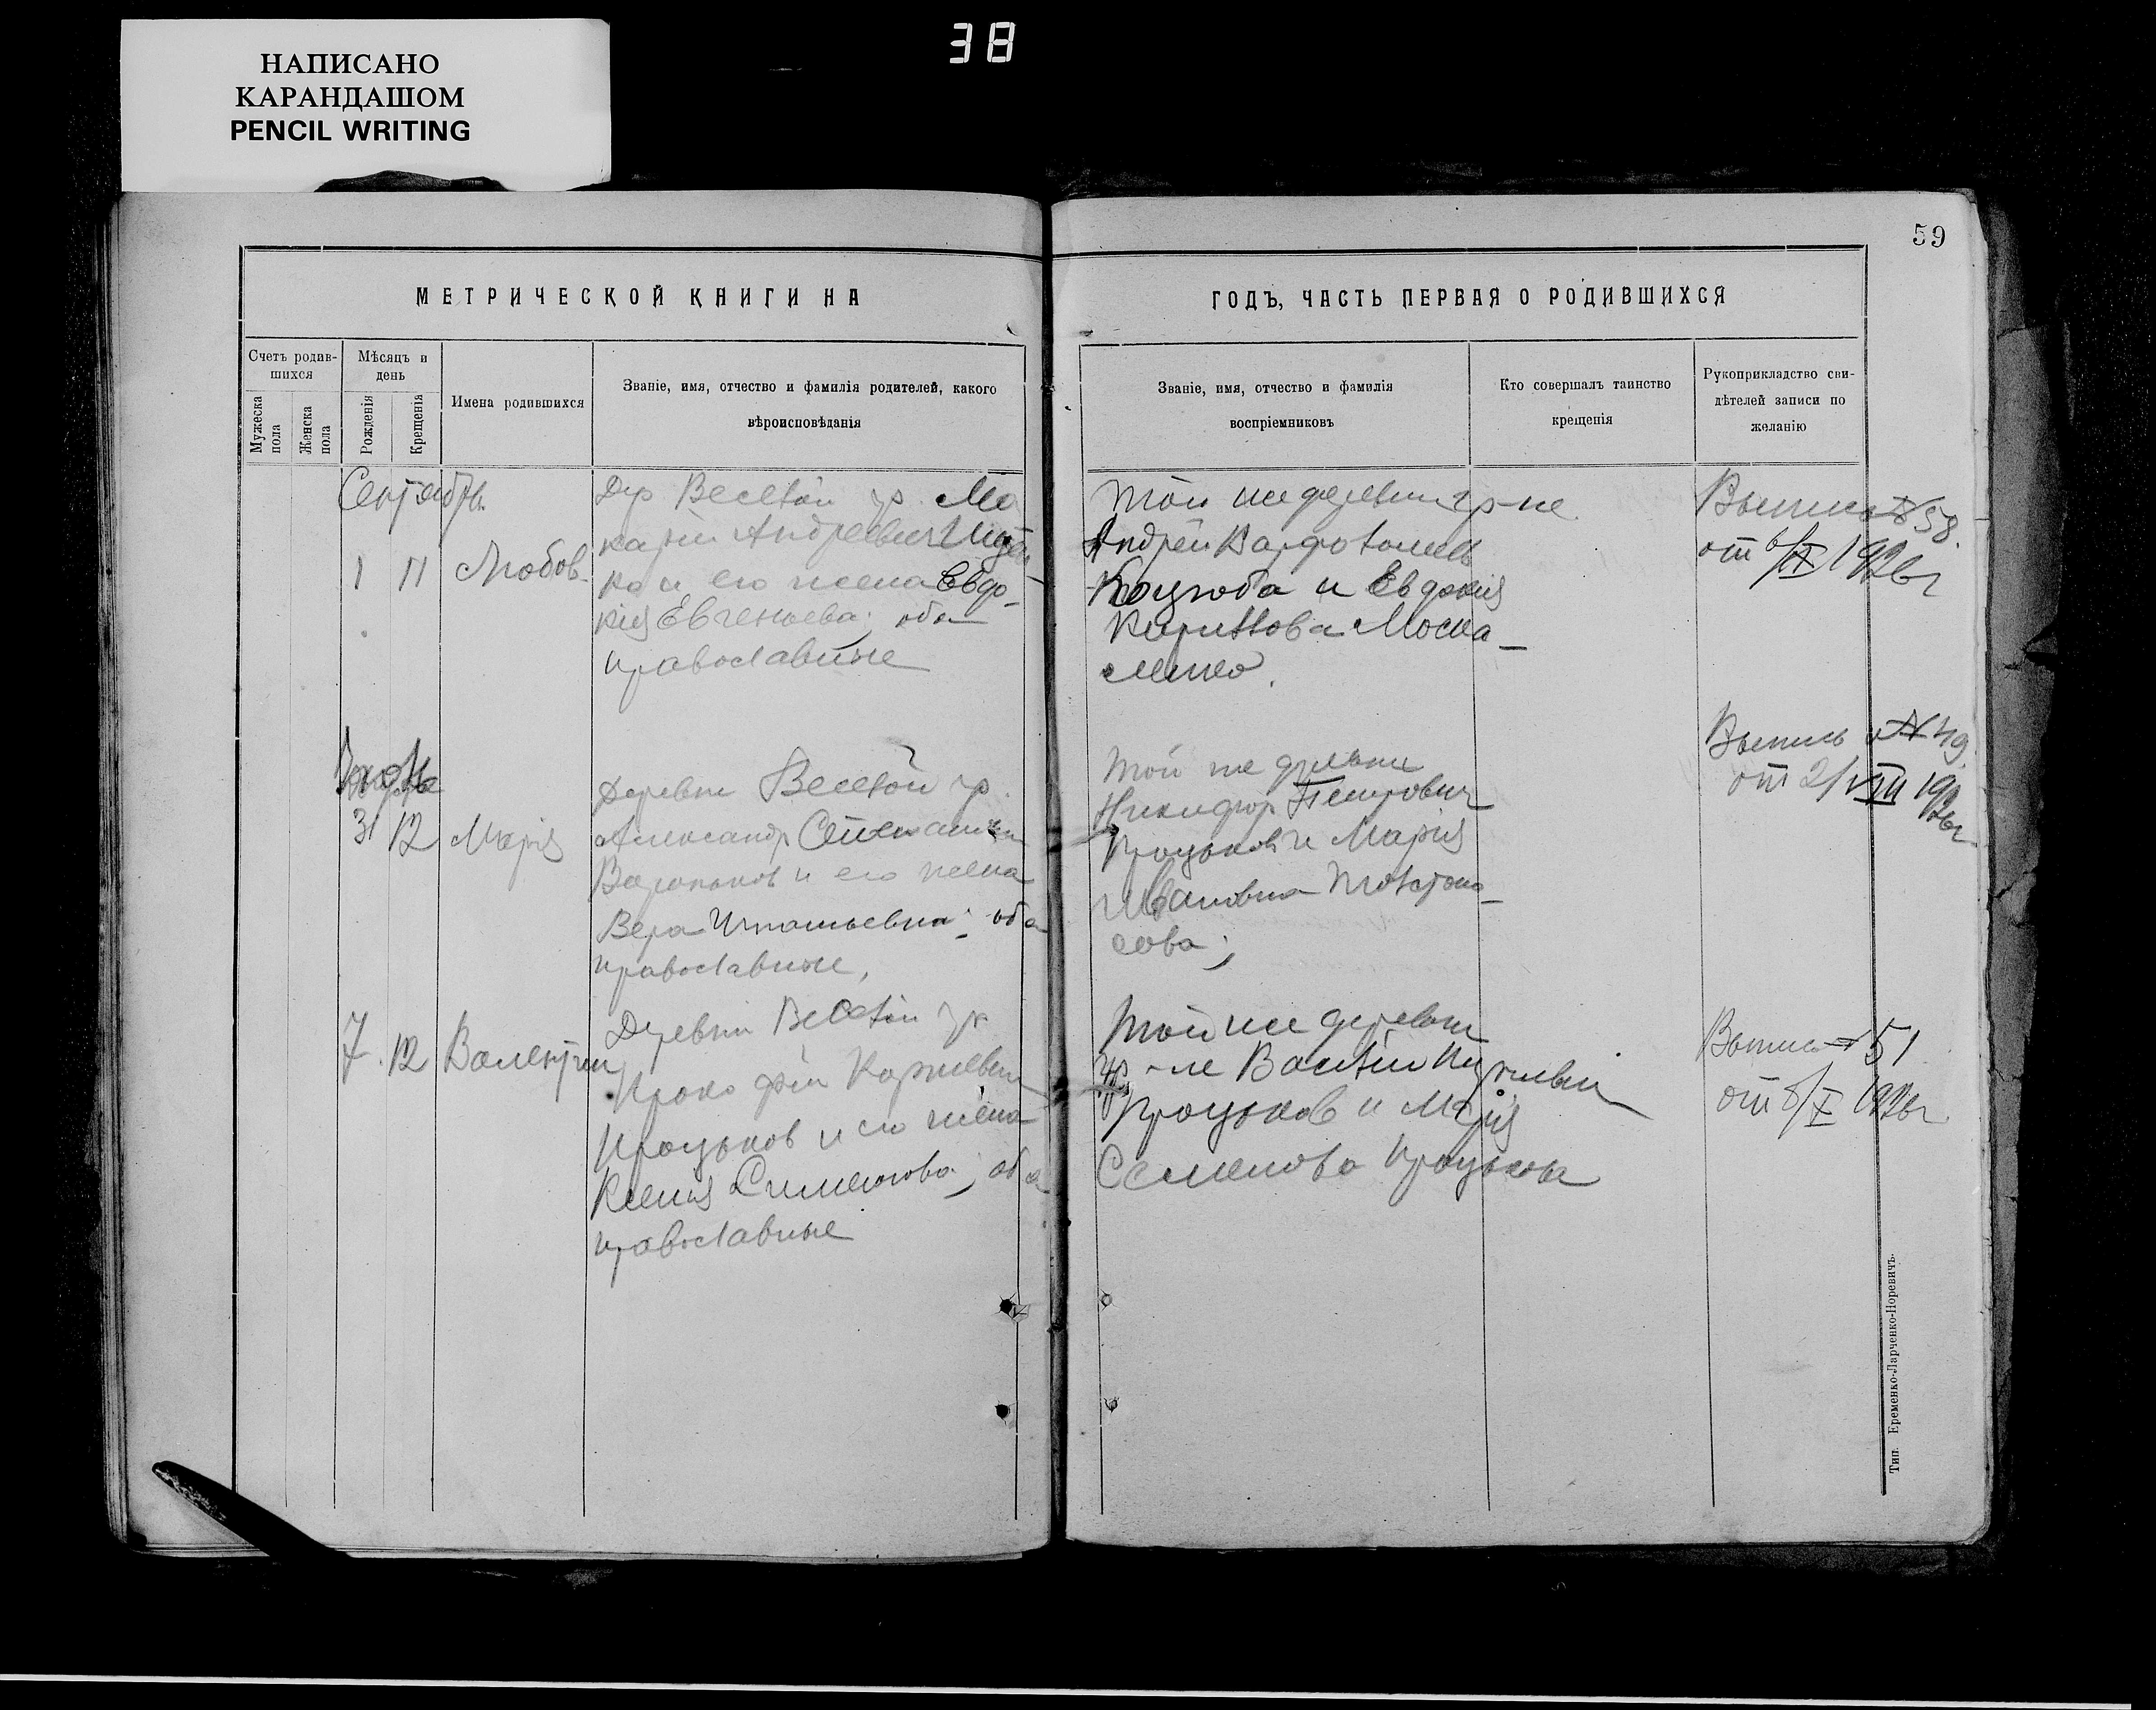 НАПИСАНО
КАРАНДАШОМ
PENCIL WRITING
38
59
МЕТРИЧЕСКОЙ КНИГИ НА
ГОДЪ, ЧАСТЬ ПЕРВАЯ О РОДИВШИХСЯ
Счетъ родив-
шихся
Мужеска
пола
Женска
пола
Мѣсяцъ и
день
Рожденія
Крещенія
Имена родившихся
Званіе, имя, отчество и фамилія родителей, какого
вѣроисповѣданія
Званіе, имя, отчество и фамилія
воспріемниковъ
Кто совершалъ таинство
крещенія
Рукоприкладство сви-
дѣтелей записи по
желанію
Сентябрь
1 11 Любовь
Дер Веселой гр. Ма
карій Андреевич
ко и его жена Евдо-
кія Евгеньева; оба
православные
Той же деревни гр-не
Андрей Варфоломеев
Коцюба и Евдокія
Кириллова Моска-
ленко.
Выпись № 58.
от 6/IX 1926 г
31 12 Марія
Деревни Веселой гр.
Александр
и его жена
Вера Игнатьевна; оба
православные,
Той же деревни
Никифор Петрович
Процьков и Марія
Ивановна
сова;
Выпись № 49.
от 2/VIII 1926 г
7. 12 Валентин
Деревни Веселой гр
Прокофій Корнеевич
Процьков и его жена
Ксенія Симеонова; оба
православные
Той же деревни
гр-не Василій
Процьков и Марія
Семенова Процькова
Выпись № 51
от 6/X 1926 г
Тип. Еременко-Ларченко-Норевичъ.